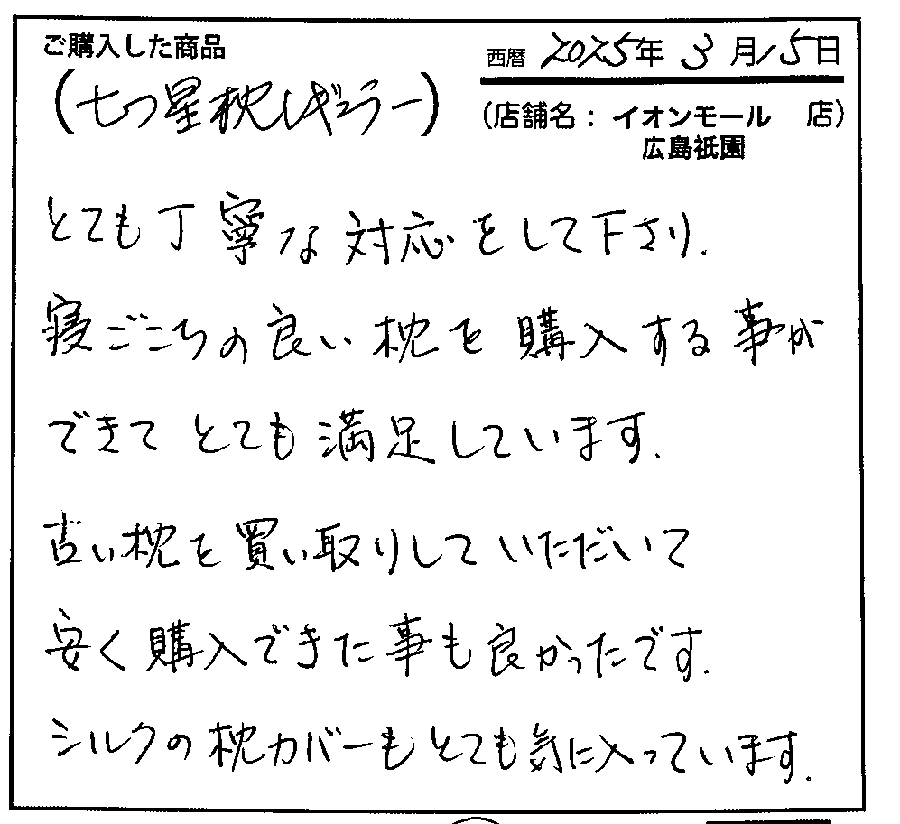 ご購入した商品
西暦 2025年 3月15日
(七つ星枕レギュラー)
(店舗名：イオンモール 店)
広島祇園
とても丁寧な対応をして下さり.
寝ごこちの良い枕を購入する事が
できてとても満足しています.
古い枕を買い取りしていただいて
安く購入できた事も良かったです.
シルクの枕カバーもとても気に入っています.